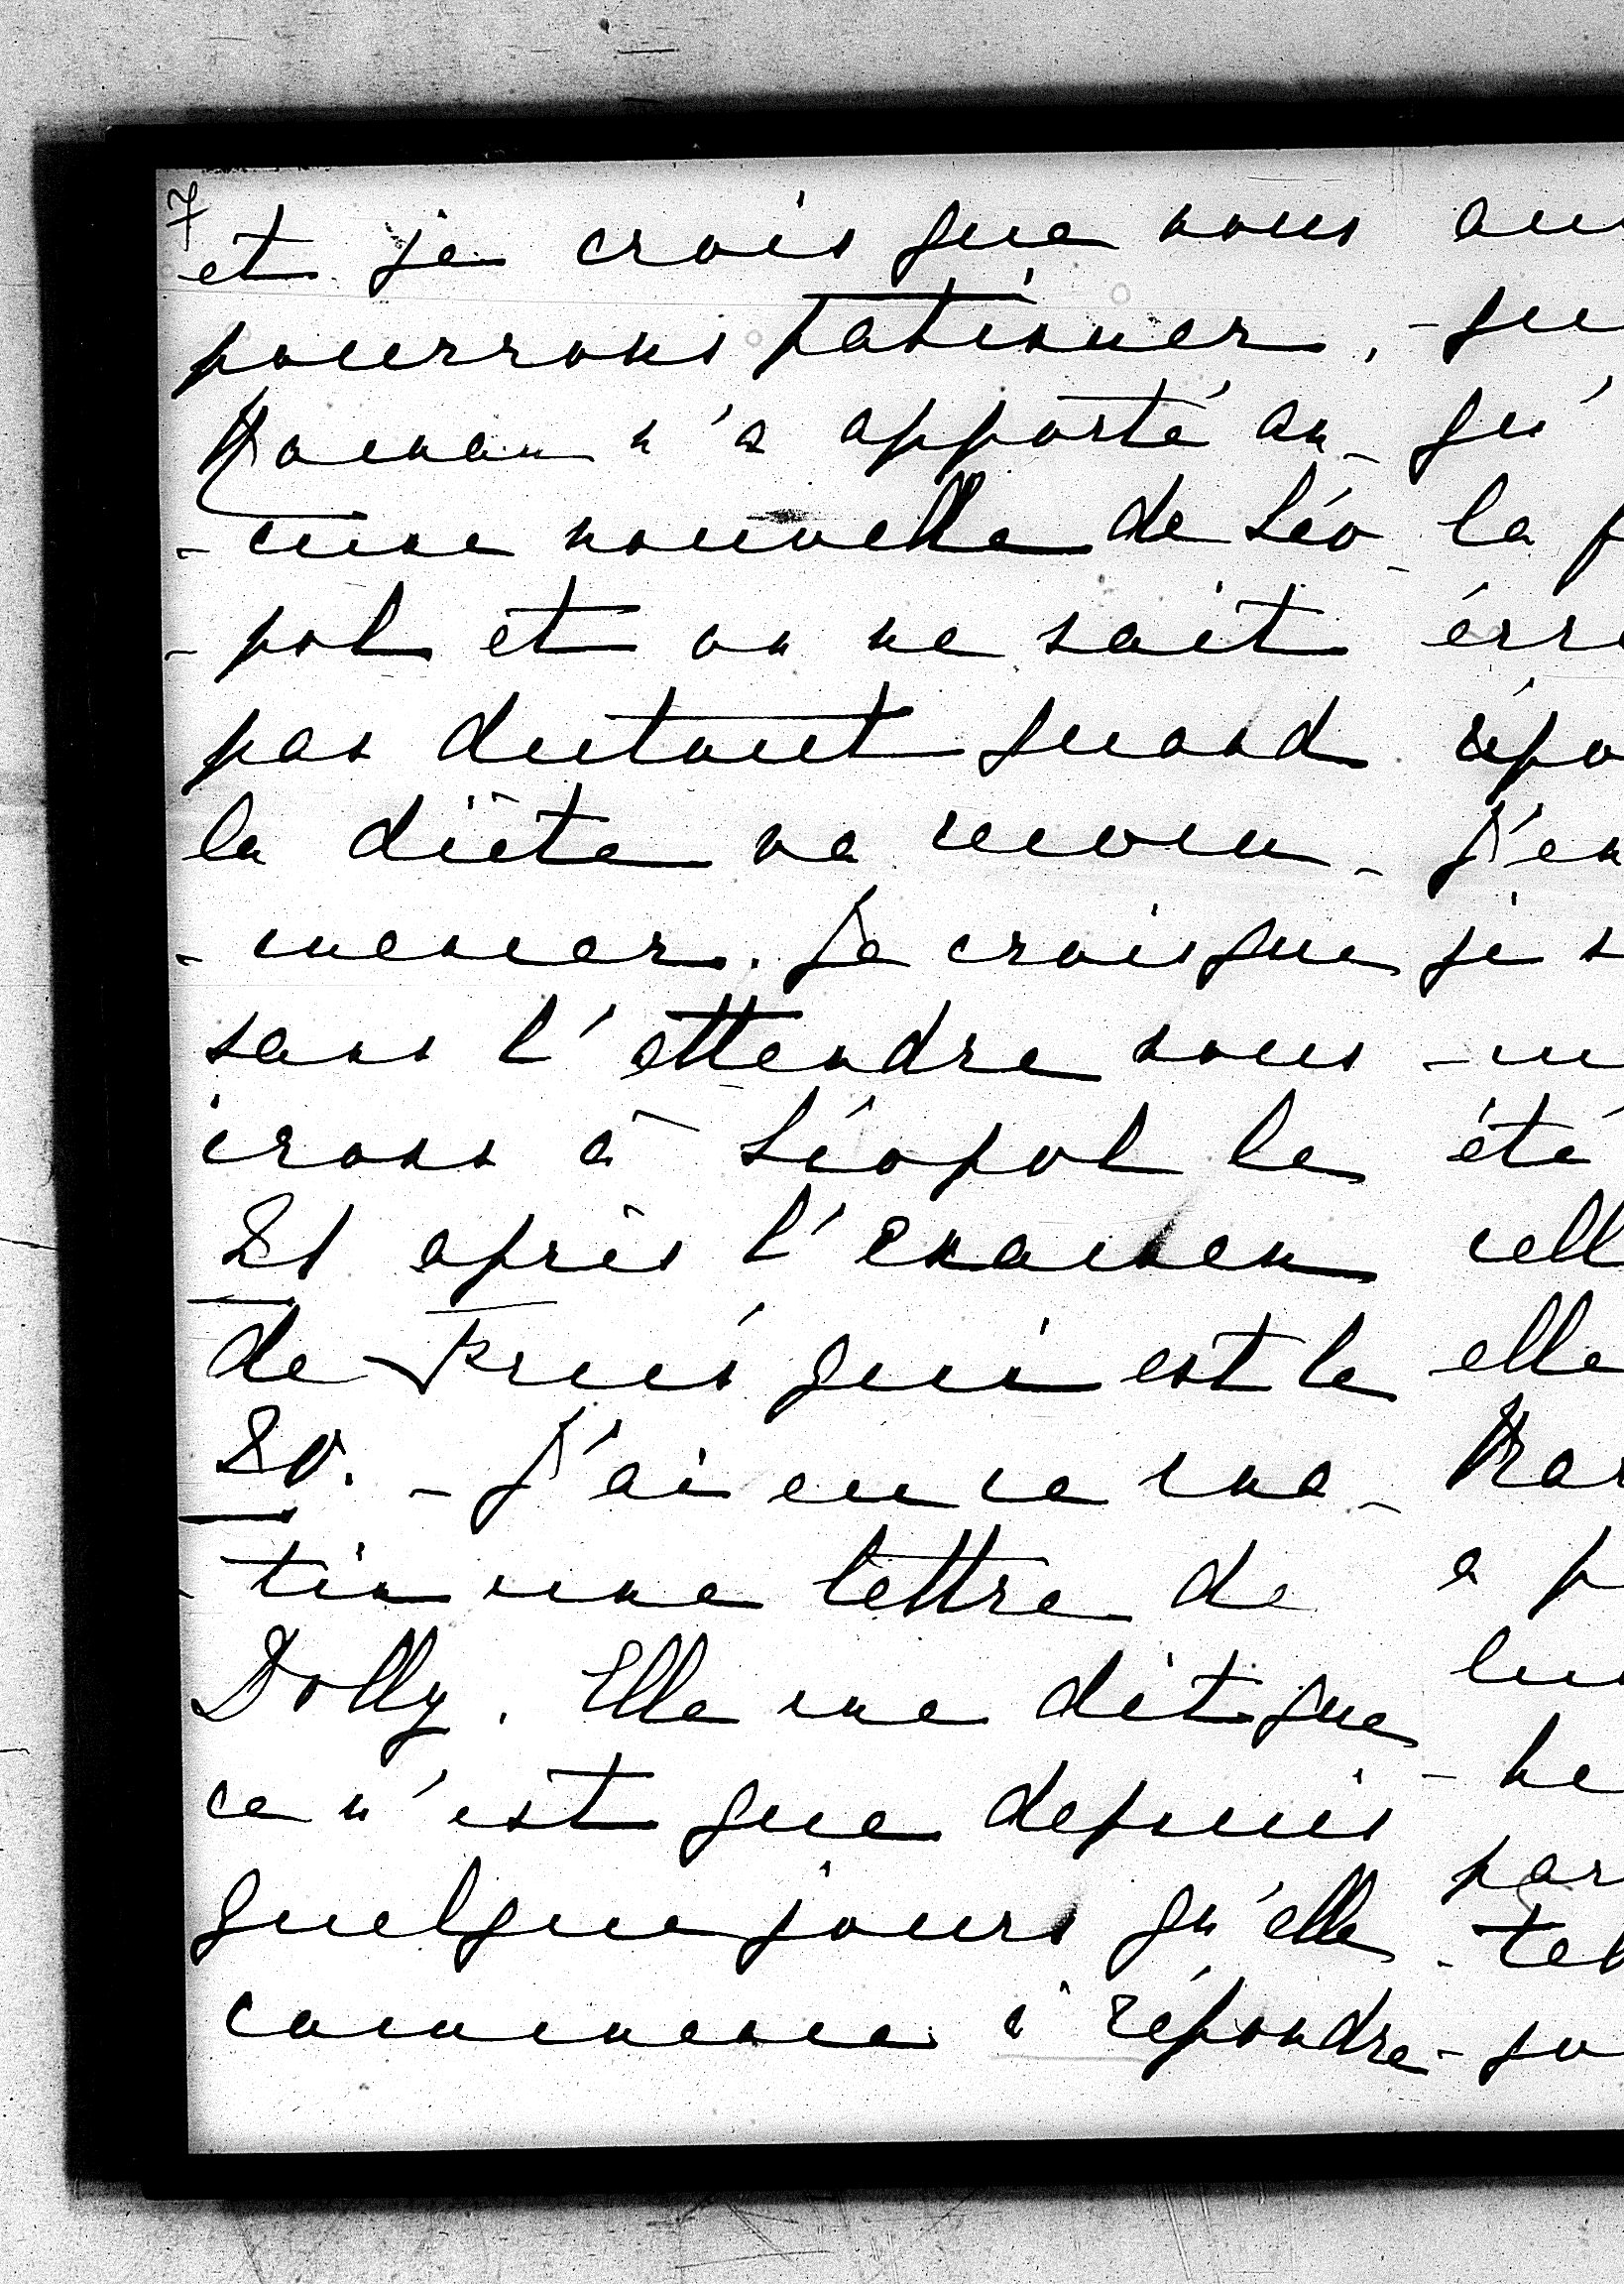 7
et je crois que nous
pourrons patisner,
Roman n'a apporté au-
-cune nouvelle de Léo-
-pol et on ne sait
pas dutout quand
la diète va recom-
-mencer. Je crois que
sans l'attendre nous
irons à Léopol le
21 après l'examen
de Fruś qui est le
20. - J'ai eu ce ma-
-tin une lettre de
Dolly. Elle me dit que
ce n'est que depuis
quelque jours qu'elle
commence à répondre
la
je
été
elle